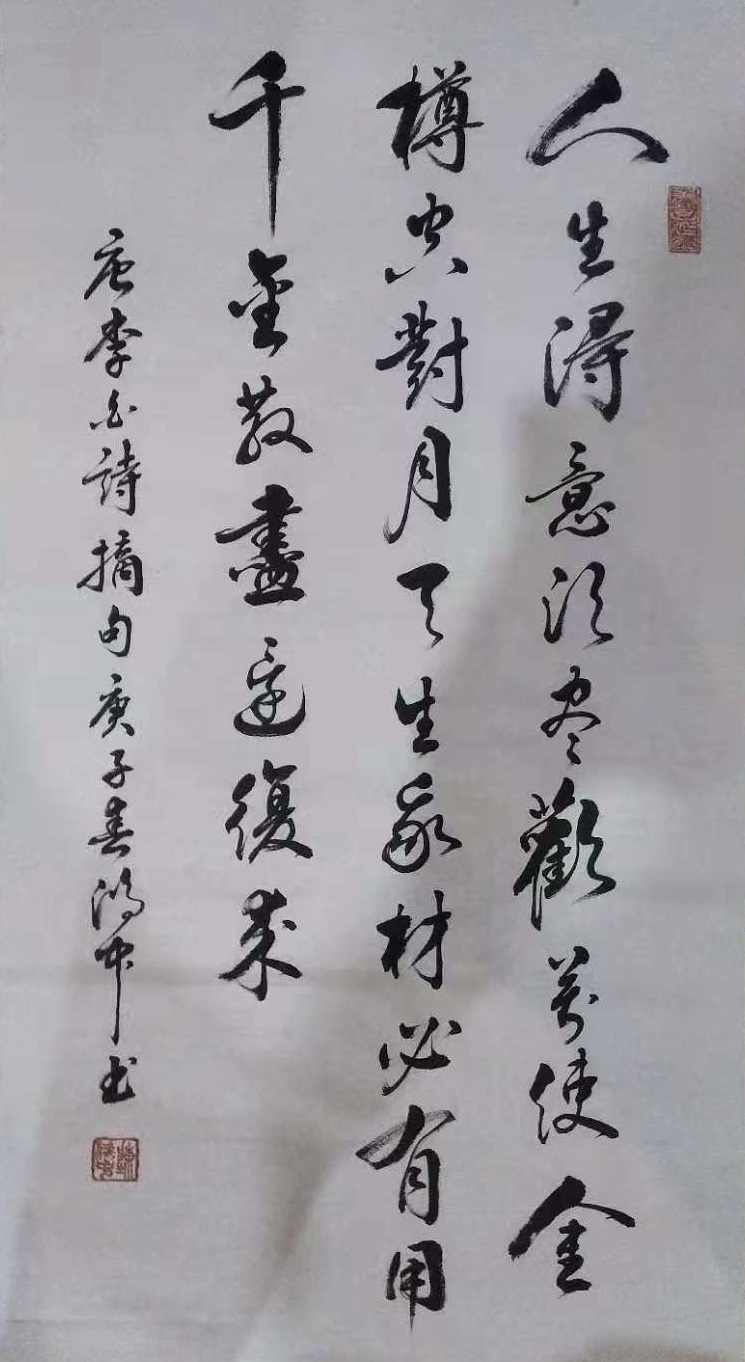 人生得意须尽歡莫使金
樽空對月天生我材必有用
千金散盡還復来
唐李白詩摘句庚子春鸿书